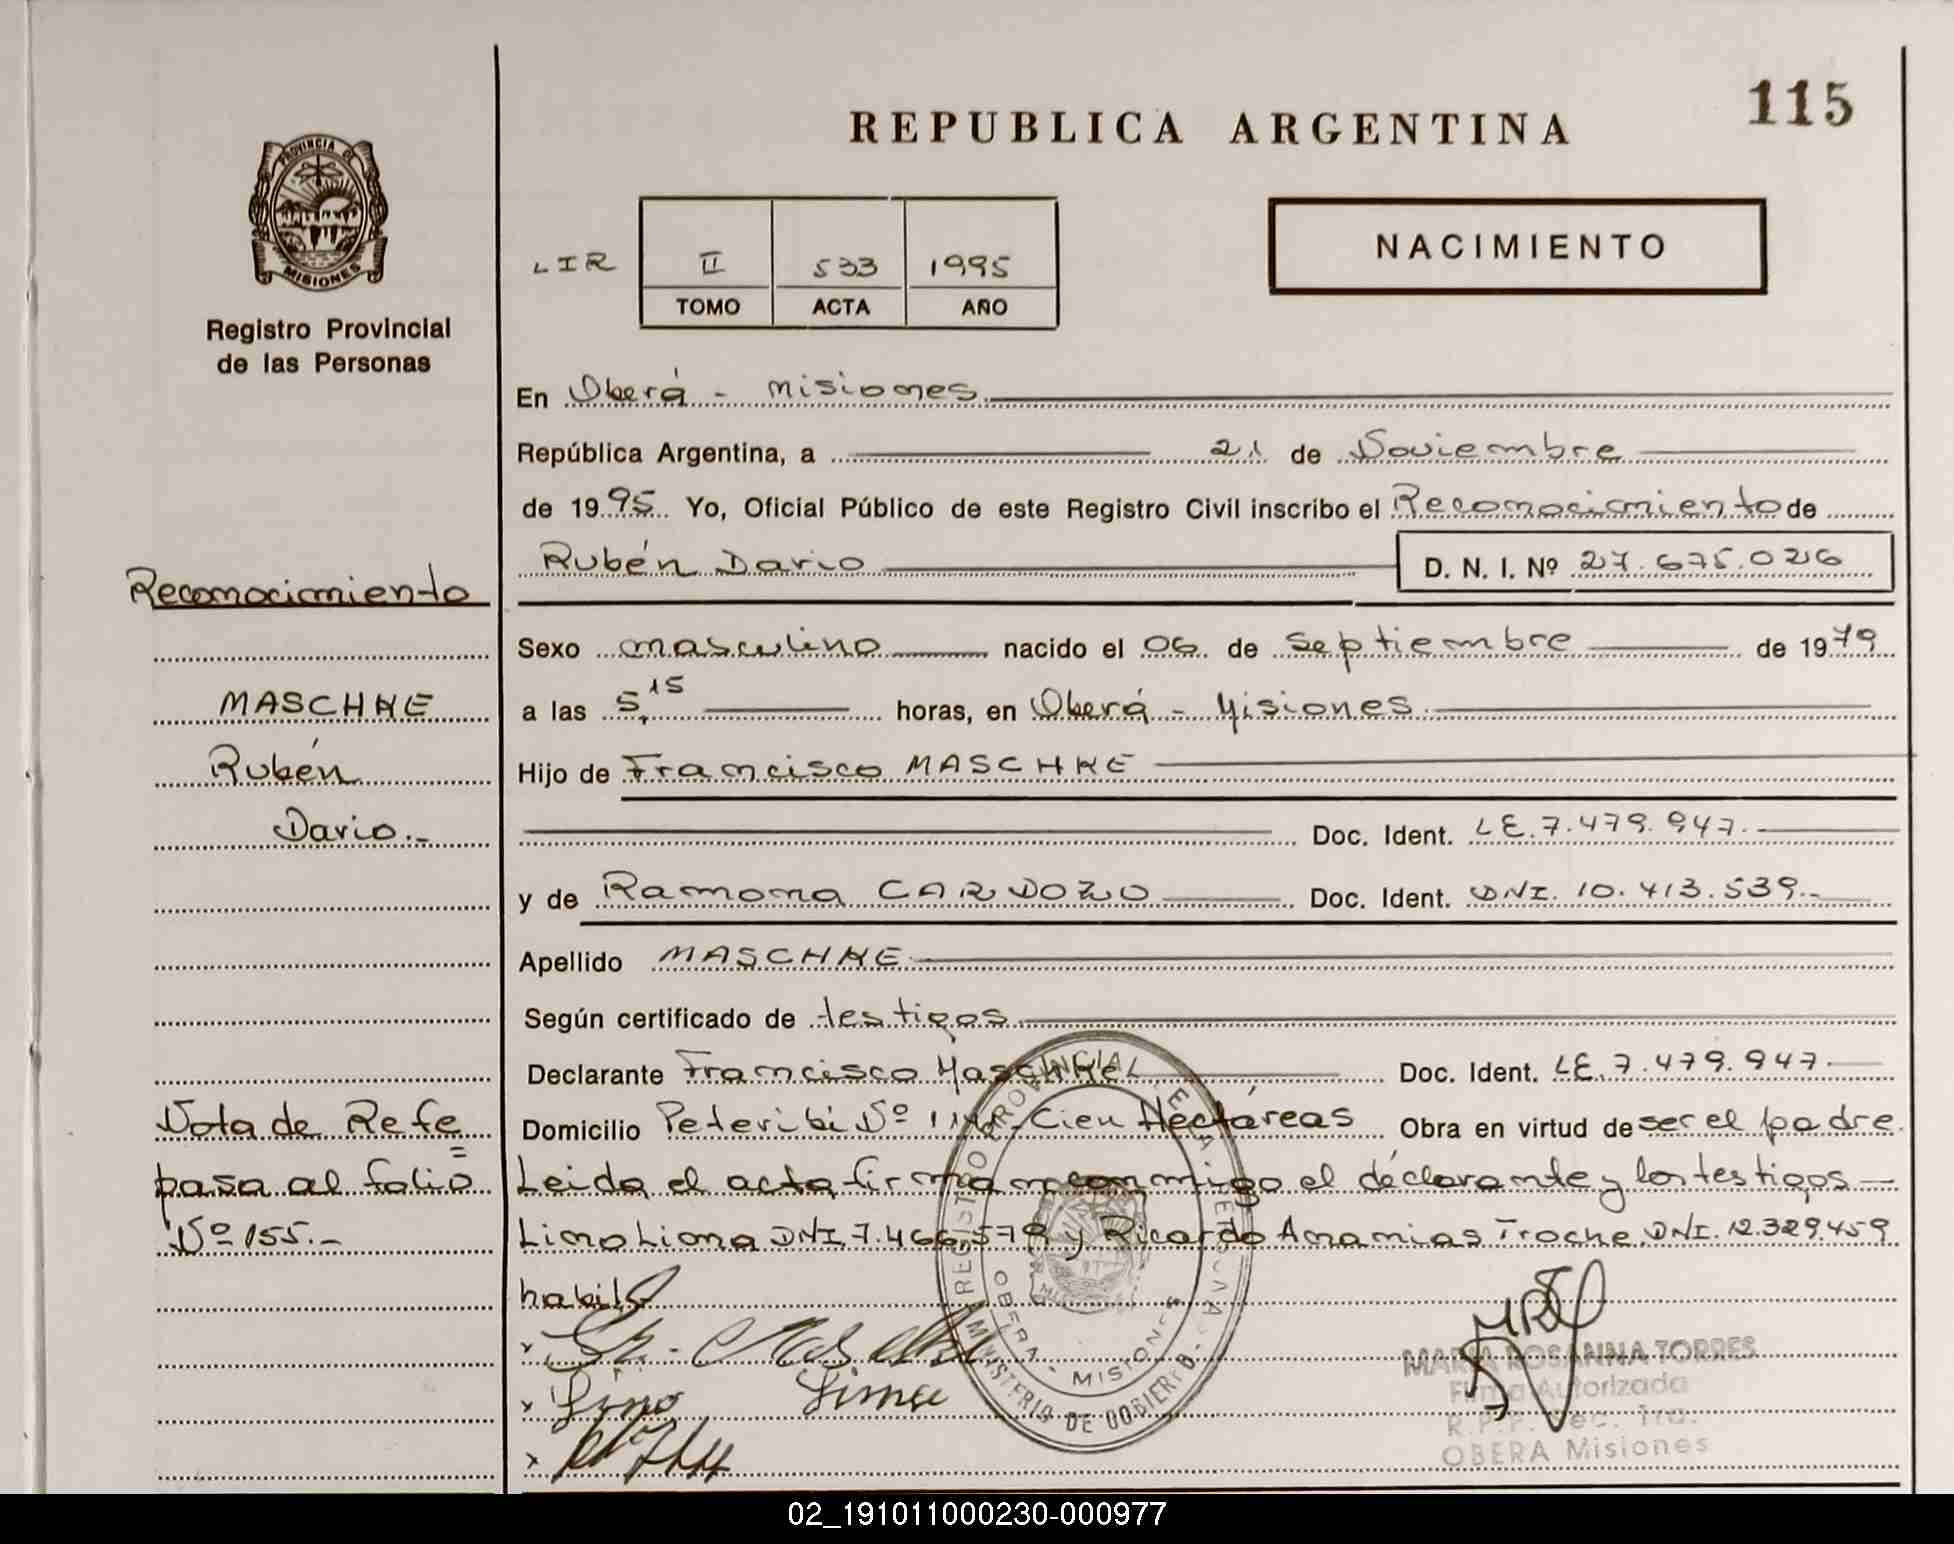 115
REPUBLICA ARGENTINA
PROVINCIA DE
MISIONES
Registro Provincial
de las Personas
NACIMIENTO
LIR II 533 1995
TOMO ACTA AÑO
En Oberá - Misiones
República Argentina, a 21 de Noviembre
de 1995 Yo, Oficial Público de este Registro Civil inscribo el Reconocimiento de
Rubén Dario D. N. I. Nº 27.675.026
Reconocimiento
Sexo masculino nacido el 06 de Septiembre de 1979
MASCHKE
a las 5,15 horas, en Oberá - Misiones
Rubén
Hijo de Francisco MASCHKE
Dario.-
Doc. Ident. LE.7.479.947.
y de Ramona CARDOZO Doc. Ident. DNI. 10.413.539.-
Apellido MASCHKE
Según certificado de testigos
Declarante Francisco Maschke Doc. Ident. LE.7.479.947
Nota de Refe=
Domicilio Peteribí Nº Cien Hectáreas Obra en virtud de ser el padre.
pasa al folio
Leida el acta firman conmigo el declarante y los testigos
Nº 155.-
Lino Lima DNI.7.466.579 y Ricardo Ananias Troche DNI.12.329.459
REGISTRO PROVINCIAL DE LAS PERSONAS
OBERA - MISIONES
MINISTERIO DE GOBIERNO
Lino Lima
MARIA ROSANNA TORRES
Firma Autorizada
OBERA Misiones
02_191011000230-000977